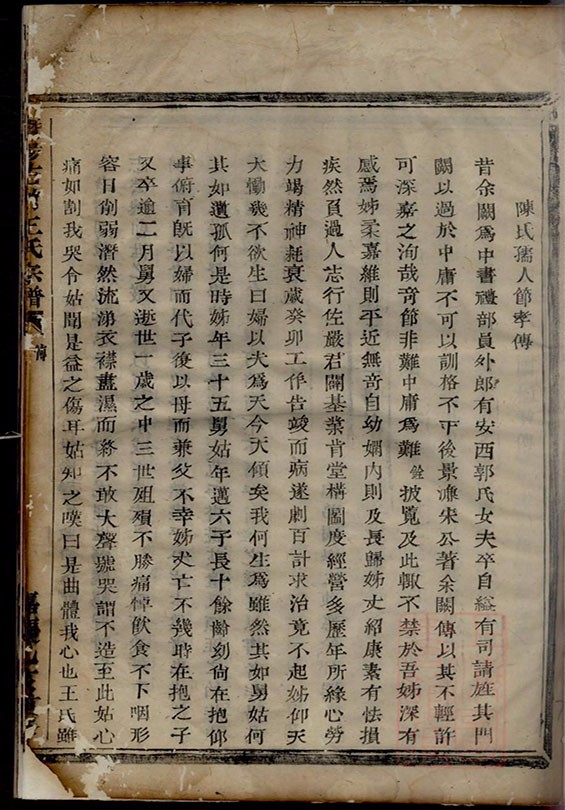 陳氏孺人節孝傳
昔余闕爲中書禮部員外郎有安西郭氏女夫卒自縊有司請旌其門
闕以過於中庸不可以訓格不下後景濂宋公著余闕傳以其不輕許
可深嘉之洵哉竒節非難中庸爲難銓披覽及此輙不禁於吾姊深有
感焉姊柔嘉維則平近無竒自幼嫻內則及長歸姊丈紹康素有怯損
疾然負過人志行佐嚴君闢基葉肯堂構圖度經營多歷年所緣心勞
力竭精神耗衰歲癸卯工作告竣而病遂劇百計求治竟不起姊仰天
大慟幾不欲生曰婦以夫爲天今天傾矣我何生爲雖然其如舅姑何
其如遺孤何是時姊年三十五舅姑年邁六子長十餘齡刻尙在抱仰
事俯育旣以婦而代子復以母而兼父不幸姊夫亡不幾時在抱之子
又卒逾二月舅又逝世一歲之中三世殂殞不勝痛悼飮食不下咽形
容日削弱潛然流涕衣襟盡濕而終不敢大聲號哭謂不造至此姑心
痛如割我哭令姑聞是益之傷耳姑知之嘆曰是曲體我心也王氏雖
王氏宗譜